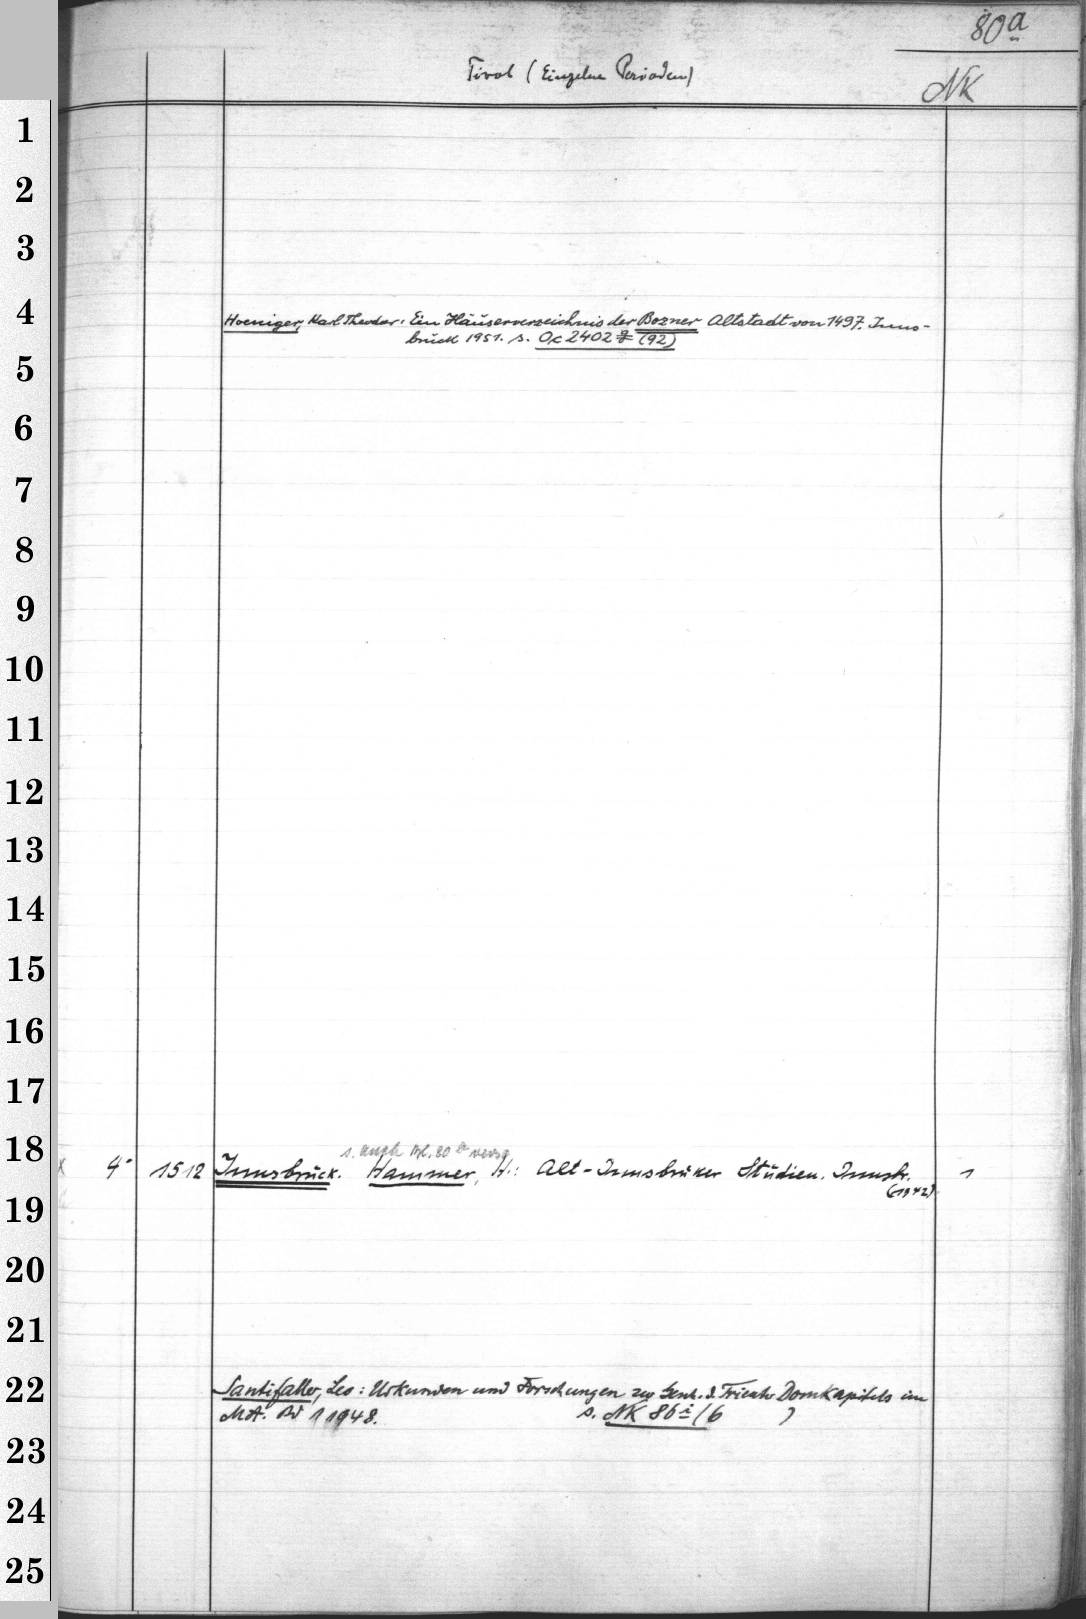 80a
Tirol (Einzelne Perioden)
NK
1
2
3
4
Hoeniger, Karl Theodor: Ein Häuserverzeichnis der Bozner Altstadt von 1497. Inns-
bruck 1951. s. Oc 2402 g (92)
5
6
7
8
9
10
11
12
13
14
15
16
17
18
s. auch Bl. 80 a verso
4° 1512 Innsbruck. Hammer, H.: Alt-Innsbruker Studien. Innsbr. 1
(1942)
19
20
21
22
Santifaller, Leo: Urkunden und Forschungen zur Gesch. d. Trienter Domkapitels im
MA. Bd 1 1948. s. NK 86 i (6 )
23
24
25